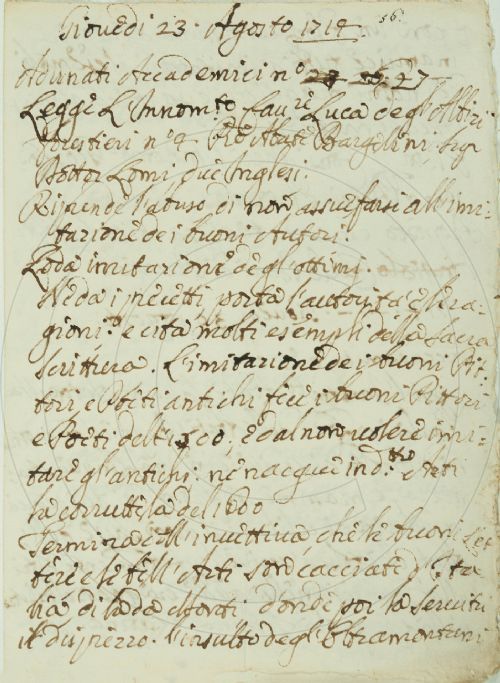 56.
Giovedi 23. Agosto 1714.
Adunati Accademici n.o 27
Leggè L'Innom.to Cav.re Luca degl'Albizi
forestieri n.o 4 Bargellini, Sig.r
Dottor Lomi, due Inglesi.
Riprende l'abuso di non assuefarsi all'imi-
tazione de i buoni Autori.
Loda imitazione degl'ottimi.
Ne da i precetti porta l'autorità e le ra-
gioni, e cita molti esempli della Sacra
Scrittura. L'imitazione de i buoni Pit-
tori, e Poeti antichi fece i buoni Pittori
e Poeti del 1500, e dal non volere imi-
tare gl'antichi ne nacque in d.te Arti
la corruttela del 1600
Termina coll'invettiva, che le buone Let-
tere e le bell'Arti son cacciate d'Ita-
lia, di là da Monti d'onde poi la servitù
il disprezzo. l'insulto degl'Oltramontani